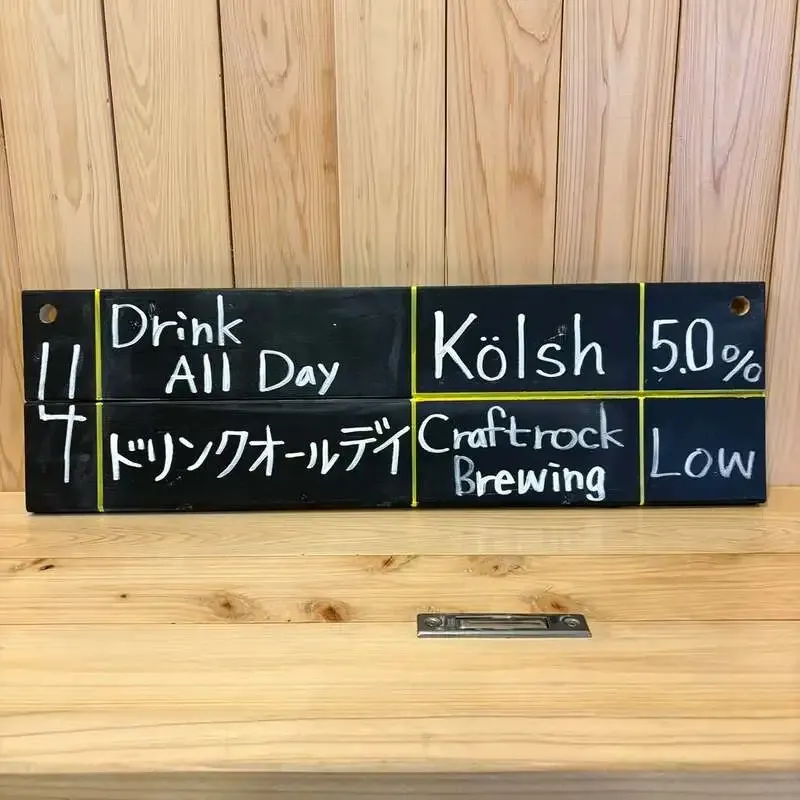 114
Drink
All Day
ドリンクオールデイ
Kölsh
Craftrock
Brewing
5.0%
Low